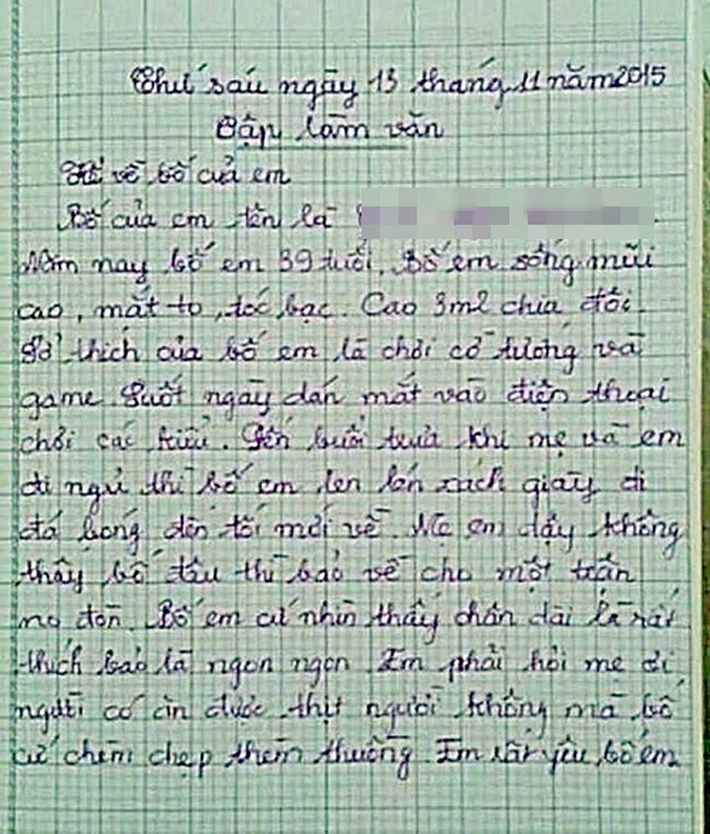 Thứ sáu ngày 13 tháng 11 năm 2015
Tập làm văn
Kể về bố của em
Bố của em tên là
Năm nay bố em 39 tuổi. Bố em sống mũi
cao, mắt to, tóc bạc. Cao 3m2 chia đôi.
Sở thích của bố em là chơi cờ tướng và
game. Suốt ngày dán mắt vào điện thoại
chơi các kiểu. Đến buổi trưa khi mẹ và em
đi ngủ thì bố em len lén xách giày đi
đá bóng đến tối mới về. Mẹ em dậy không
thấy bố đâu thì bảo về cho một trần
no đòn. Bố em cứ nhìn thấy chân dài là rất
thích bảo là ngon ngon. Em phải hỏi mẹ đi
người có ăn được thịt người không mà bố
cứ chém chẹp thèm thuồng. Em rất yêu bố em